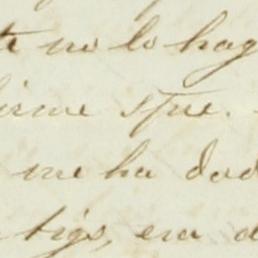 te no lo hag
irme que.
me ha dad
tigo, era d